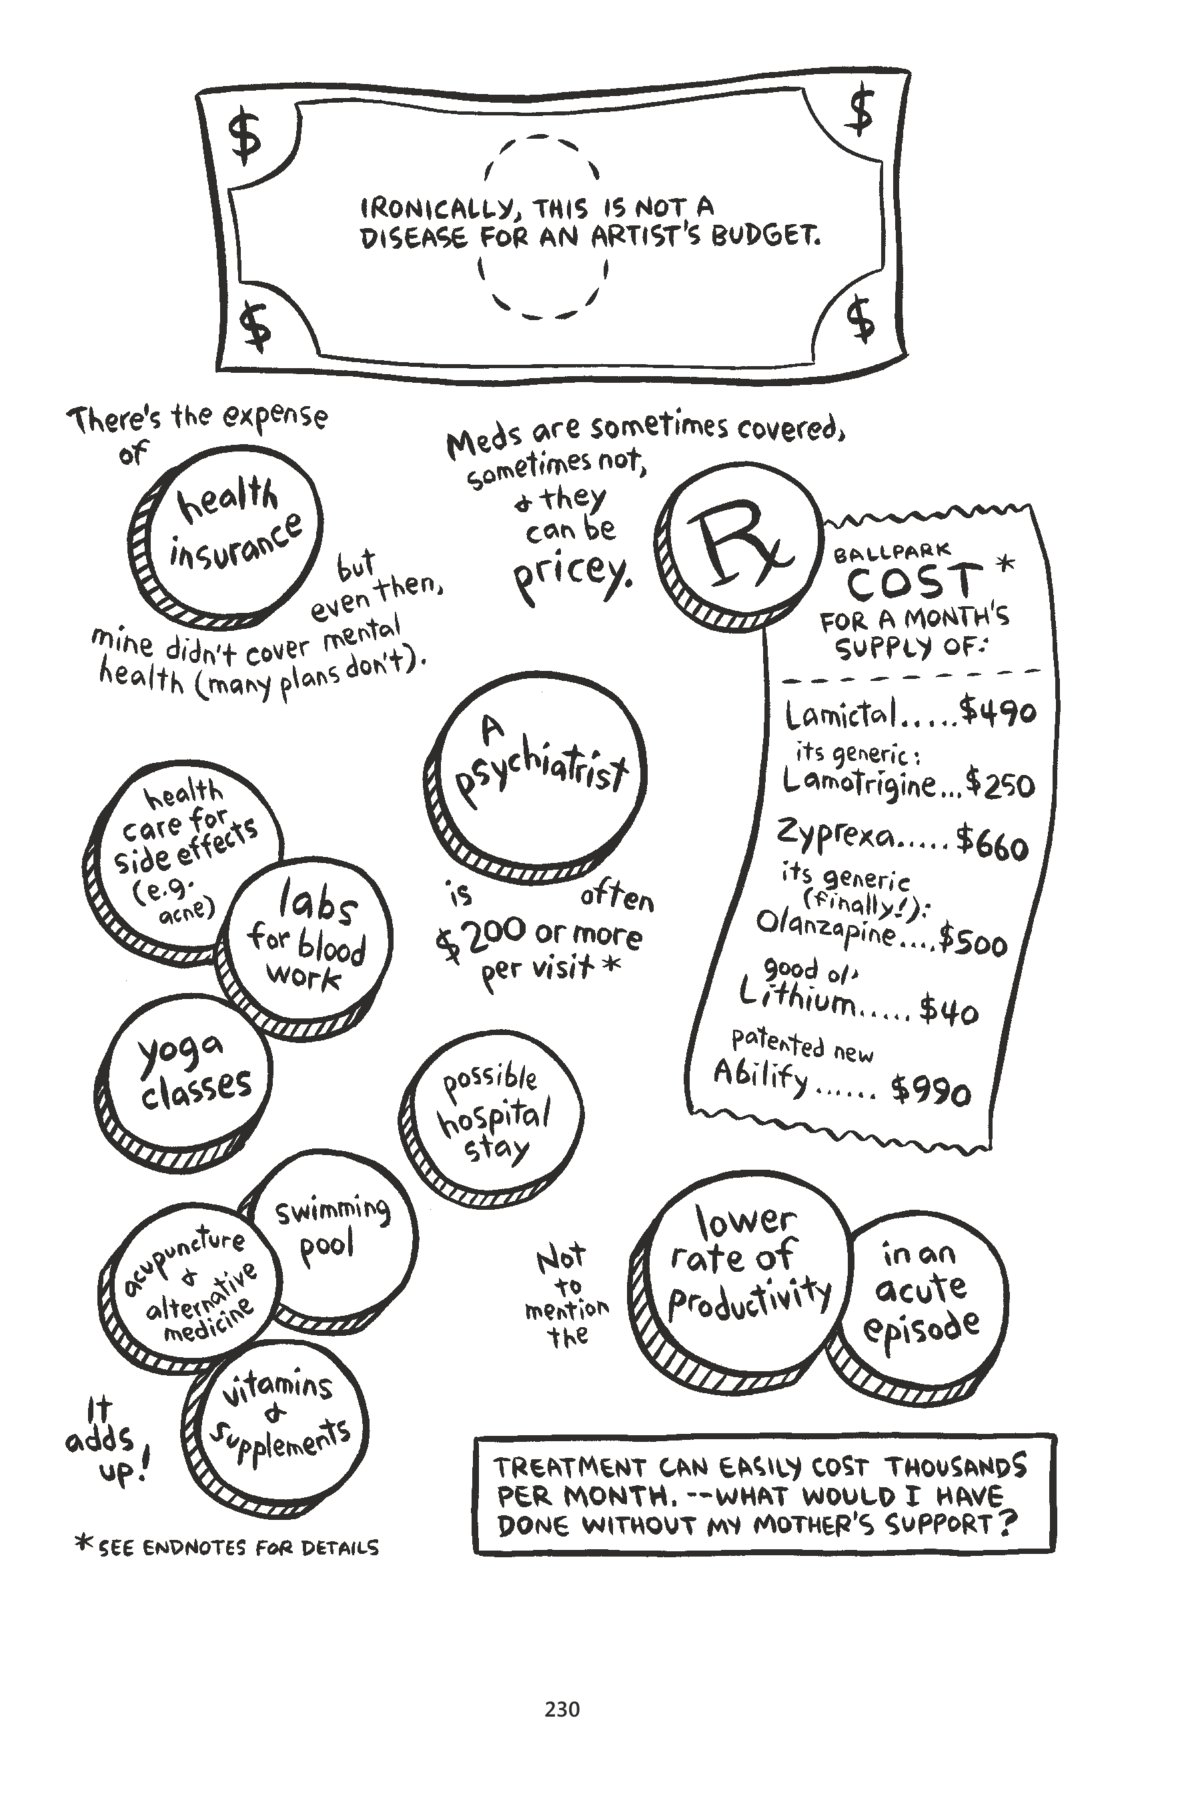 $
$
IRONICALLY, THIS IS NOT A
DISEASE FOR AN ARTIST'S BUDGET.
$
$
There's the expense
of
health
insurance
but
even then,
mine didn't cover mental
health (many plans don't).
Meds are sometimes covered,
sometimes not,
& they
can be
pricey.
Rx
BALLPARK
COST*
FOR A MONTH'S
SUPPLY OF:
Lamictal.....$490
its generic:
Lamotrigine...$250
Zyprexa.....$660
its generic
(finally!):
Olanzapine....$500
good ol'
Lithium.....$40
patented new
Abilify......$990
A
psychiatrist
is often
$200 or more
per visit*
health
care for
side effects
(e.g.
acne)
labs
for blood
work
yoga
classes
possible
hospital
stay
swimming
pool
acupuncture
&
alternative
medicine
vitamins
&
supplements
It
adds
up!
Not
to
mention
the
lower
rate of
productivity
in an
acute
episode
TREATMENT CAN EASILY COST THOUSANDS
PER MONTH. --WHAT WOULD I HAVE
DONE WITHOUT MY MOTHER'S SUPPORT?
*SEE ENDNOTES FOR DETAILS
230